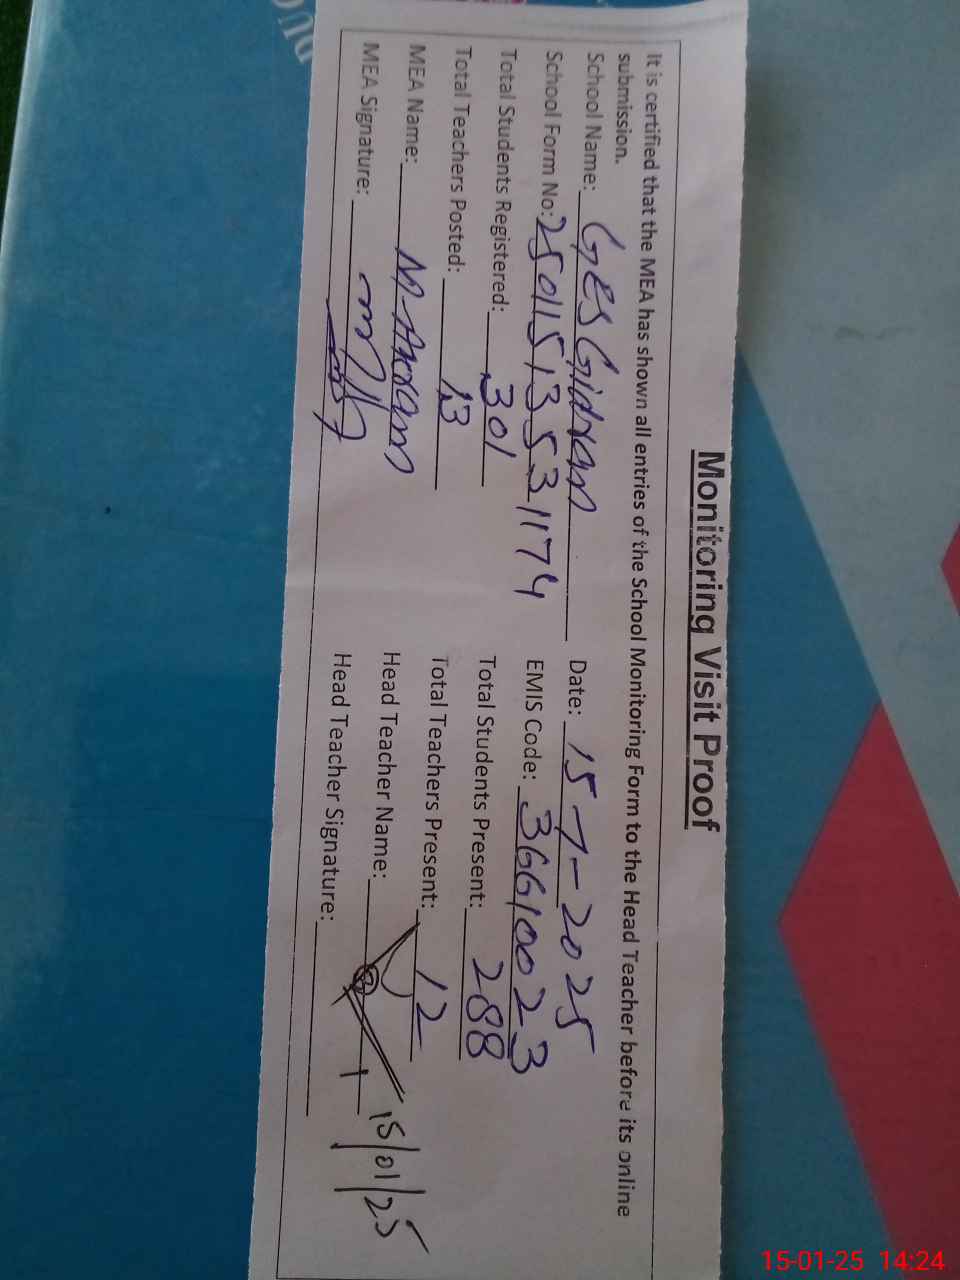 Monitoring Visit Proof
It is certified that the MEA has shown all entries of the School Monitoring Form to the Head Teacher before its online
submission.
School Name: GES Gidran Date: 15-1-2025
School Form No: 25011513531174 EMIS Code: 36610023
Total Students Registered: 301 Total Students Present: 288
Total Teachers Posted: 13 Total Teachers Present: 12
MEA Name: M-Akram Head Teacher Name:
MEA Signature: Head Teacher Signature:
15/01/25
15-01-25 14:24